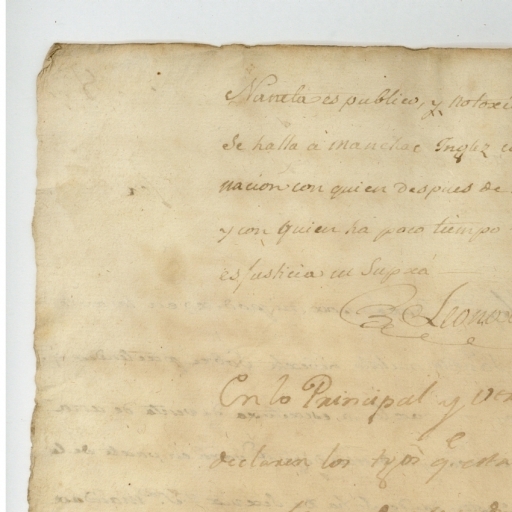 Naneta es publico, y notori
Se halla à Manchac Inglz
nacion con quien despues de
y con quien ha poco tiempo
es Justicia ut Supra
Leono
En lo Principal y
declaren los tgos q^e esta